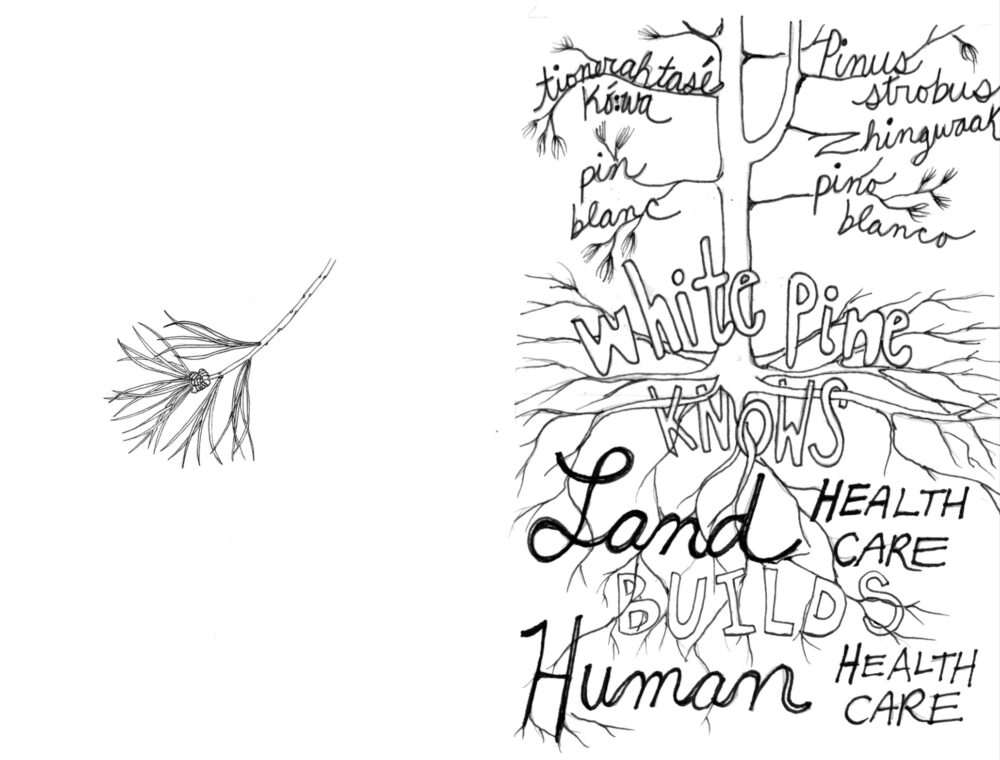 tionerahtasé
kó:wa
pin
blanc
Pinus
strobus
Zhingwaak
pino
blanco
white pine
KNOWS
Land HEALTH
CARE
BUILDS
Human HEALTH
CARE